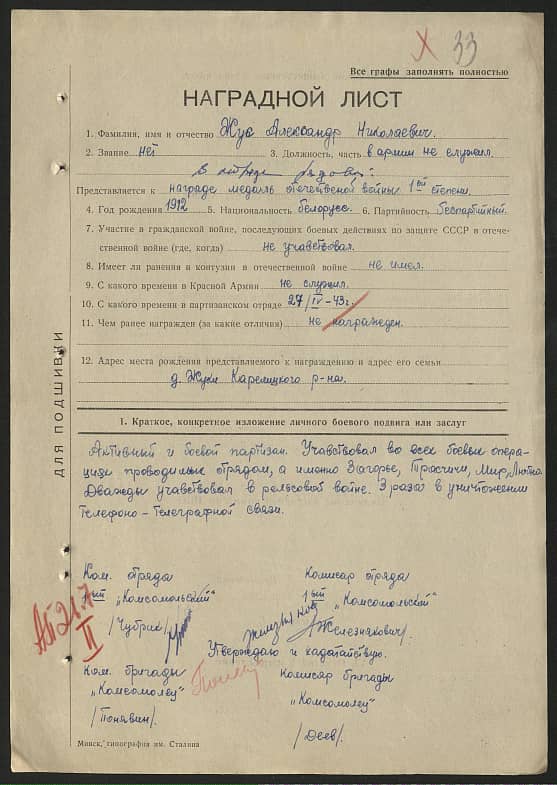 Х 33
Все графы заполнять полностью
НАГРАДНОЙ ЛИСТ
1. Фамилия, имя и отчество Жук Александр Николаевич.
2. Звание нет 3. Должность, часть в армии не служил.
в отряде рядовой.
Представляется к награде медаль отечественой войны 1ой степени.
4. Год рождения 1912 5. Национальность белорусс. 6. Партийность беспартийный.
7. Участие в гражданской войне, последующих боевых действиях по защите СССР и отече-
ственной войне (где, когда) не учавствовал.
8. Имеет ли ранения и контузии в отечественной войне не имел.
9. С какого времени в Красной Армии не служил.
10. С какого времени в партизанском отряде 27/IV-43г.
11. Чем ранее награжден (за какие отличия) не награжден.
12. Адрес места рождения представляемого к награждению и адрес его семьи
д. Жуки Карелицкого р-на.
ДЛЯ ПОДШИВКИ
1. Краткое, конкретное изложение личного боевого подвига или заслуг
Активный и боевой партизан. Учавствовал во всех боевых опера-
циях проводимых отрядом, а именно Загорье, Трасчичи, Мир,
Дважды учавствовал в рельсовой войне. 3 раза в уничтожении
Телефоно-Телеграфной связи.
Ком. отряда Комисар отряда
1ый „Комсомольский" 1ый „Комсомольский"
/Чубрик/ /Железнякович/
Утверждаю и хадотайствую.
Ком. бригады Комисар бригады
„Комсомолец" „Комсомолец"
/Понявин/ /Деев/.
Минск, типография им. Сталина